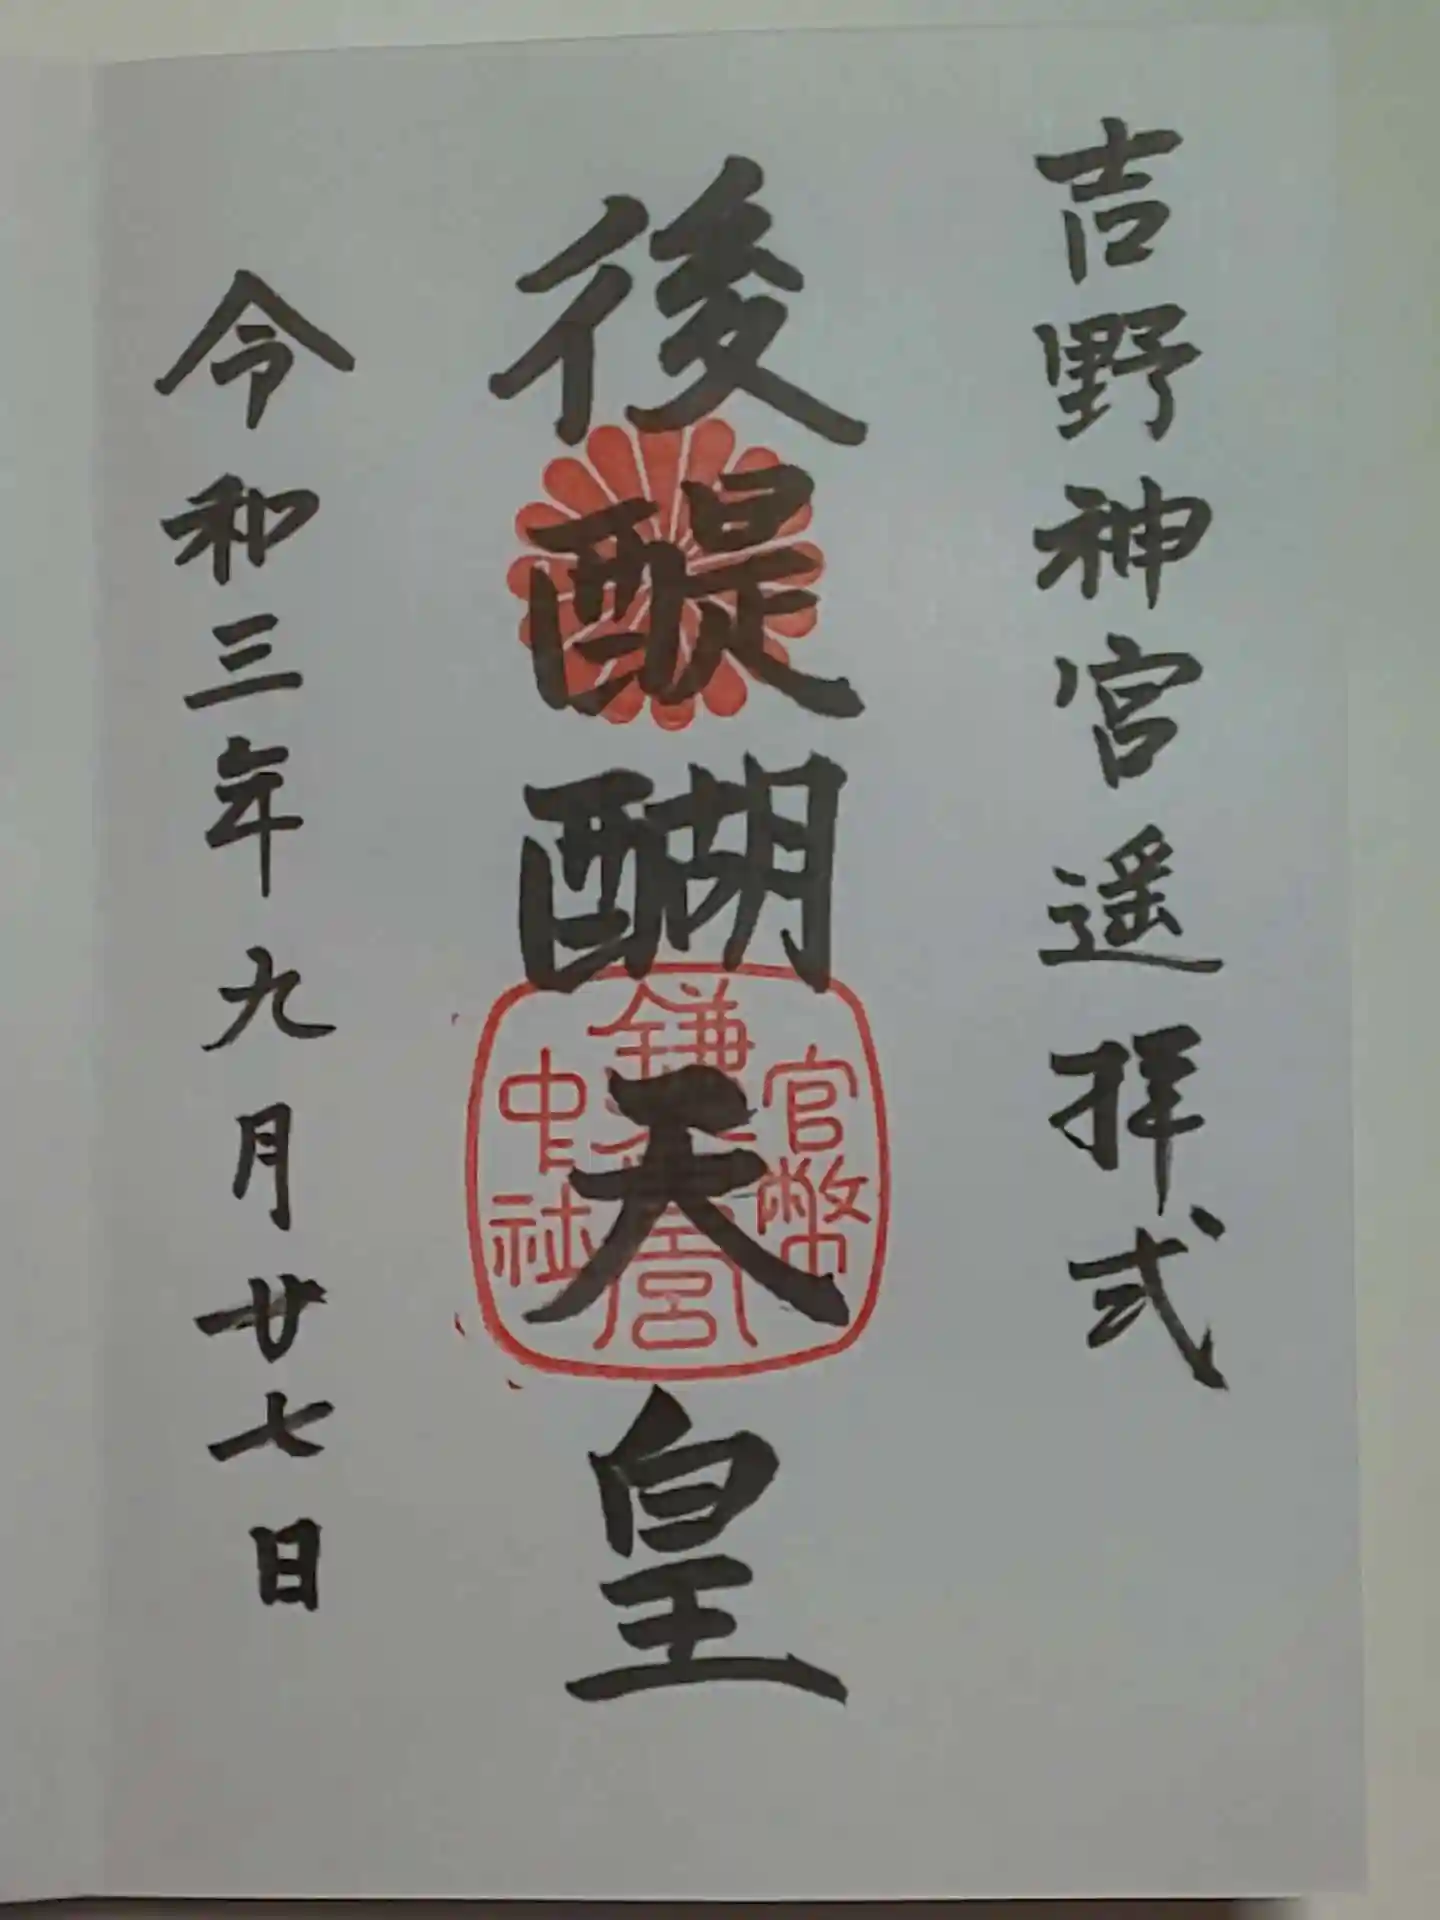 吉野神宮遥拝式
後醍醐天皇
官幣
鎌倉宮
中社
令和三年九月廿七日